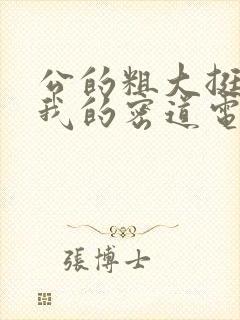 公的粗大挺
我的密道電
張博士